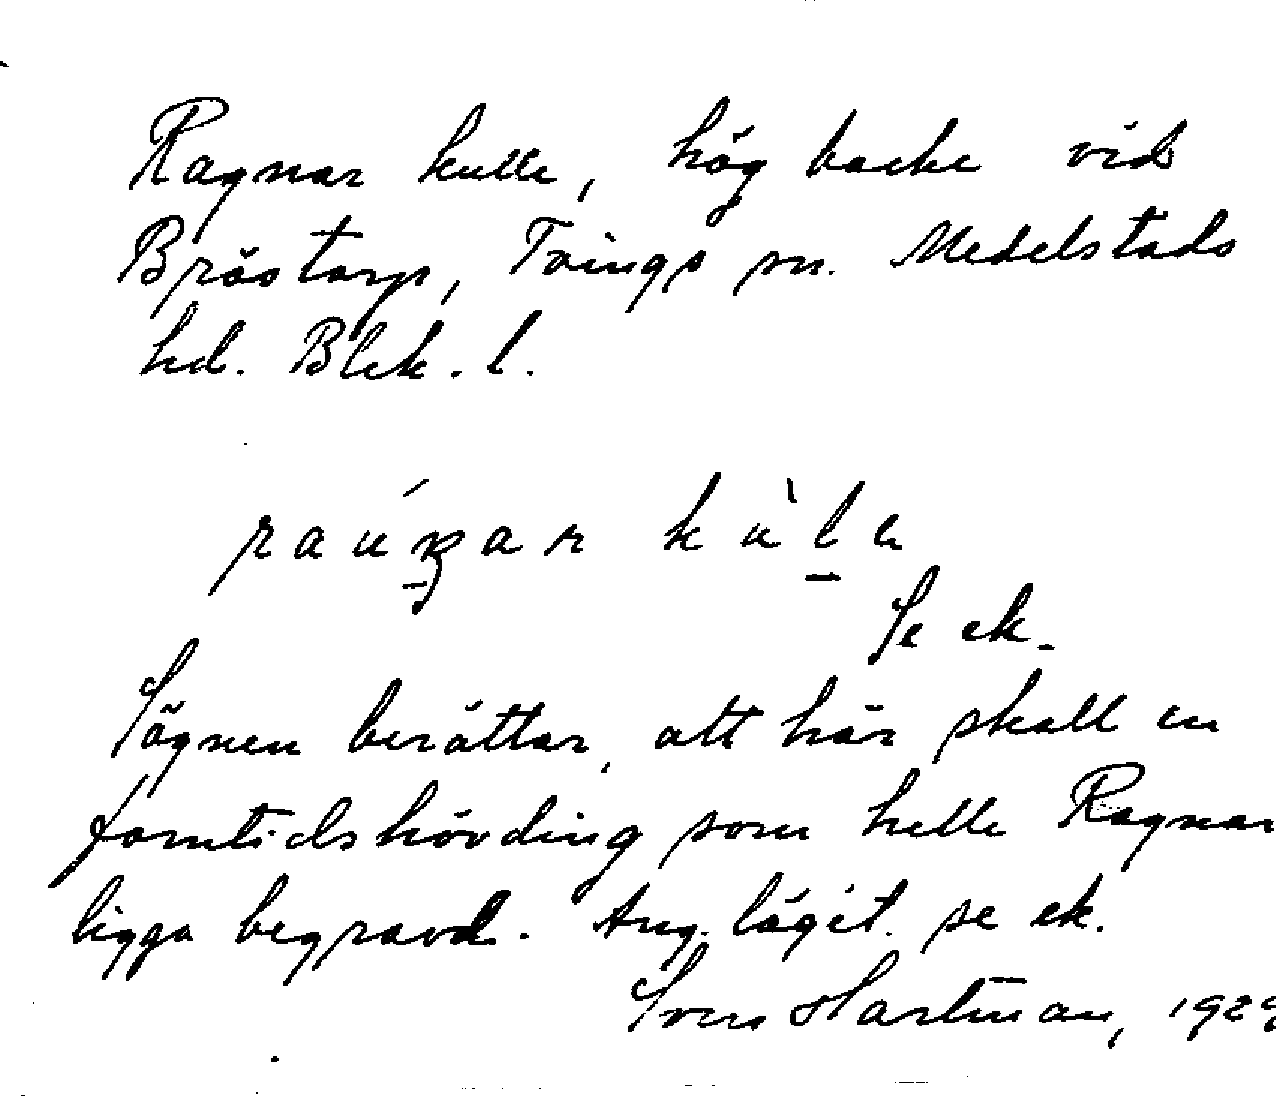 Ragnar kulle, hög backe vid
Bröstorp, Tvings sn. Medelstads
hd. Blek. l.
Se ek.
Sägnen berättar, att här skall en
forntidshövding som hette Ragnar
ligga begravd. Ang. läget se ek.
Sven Hartman, 1929